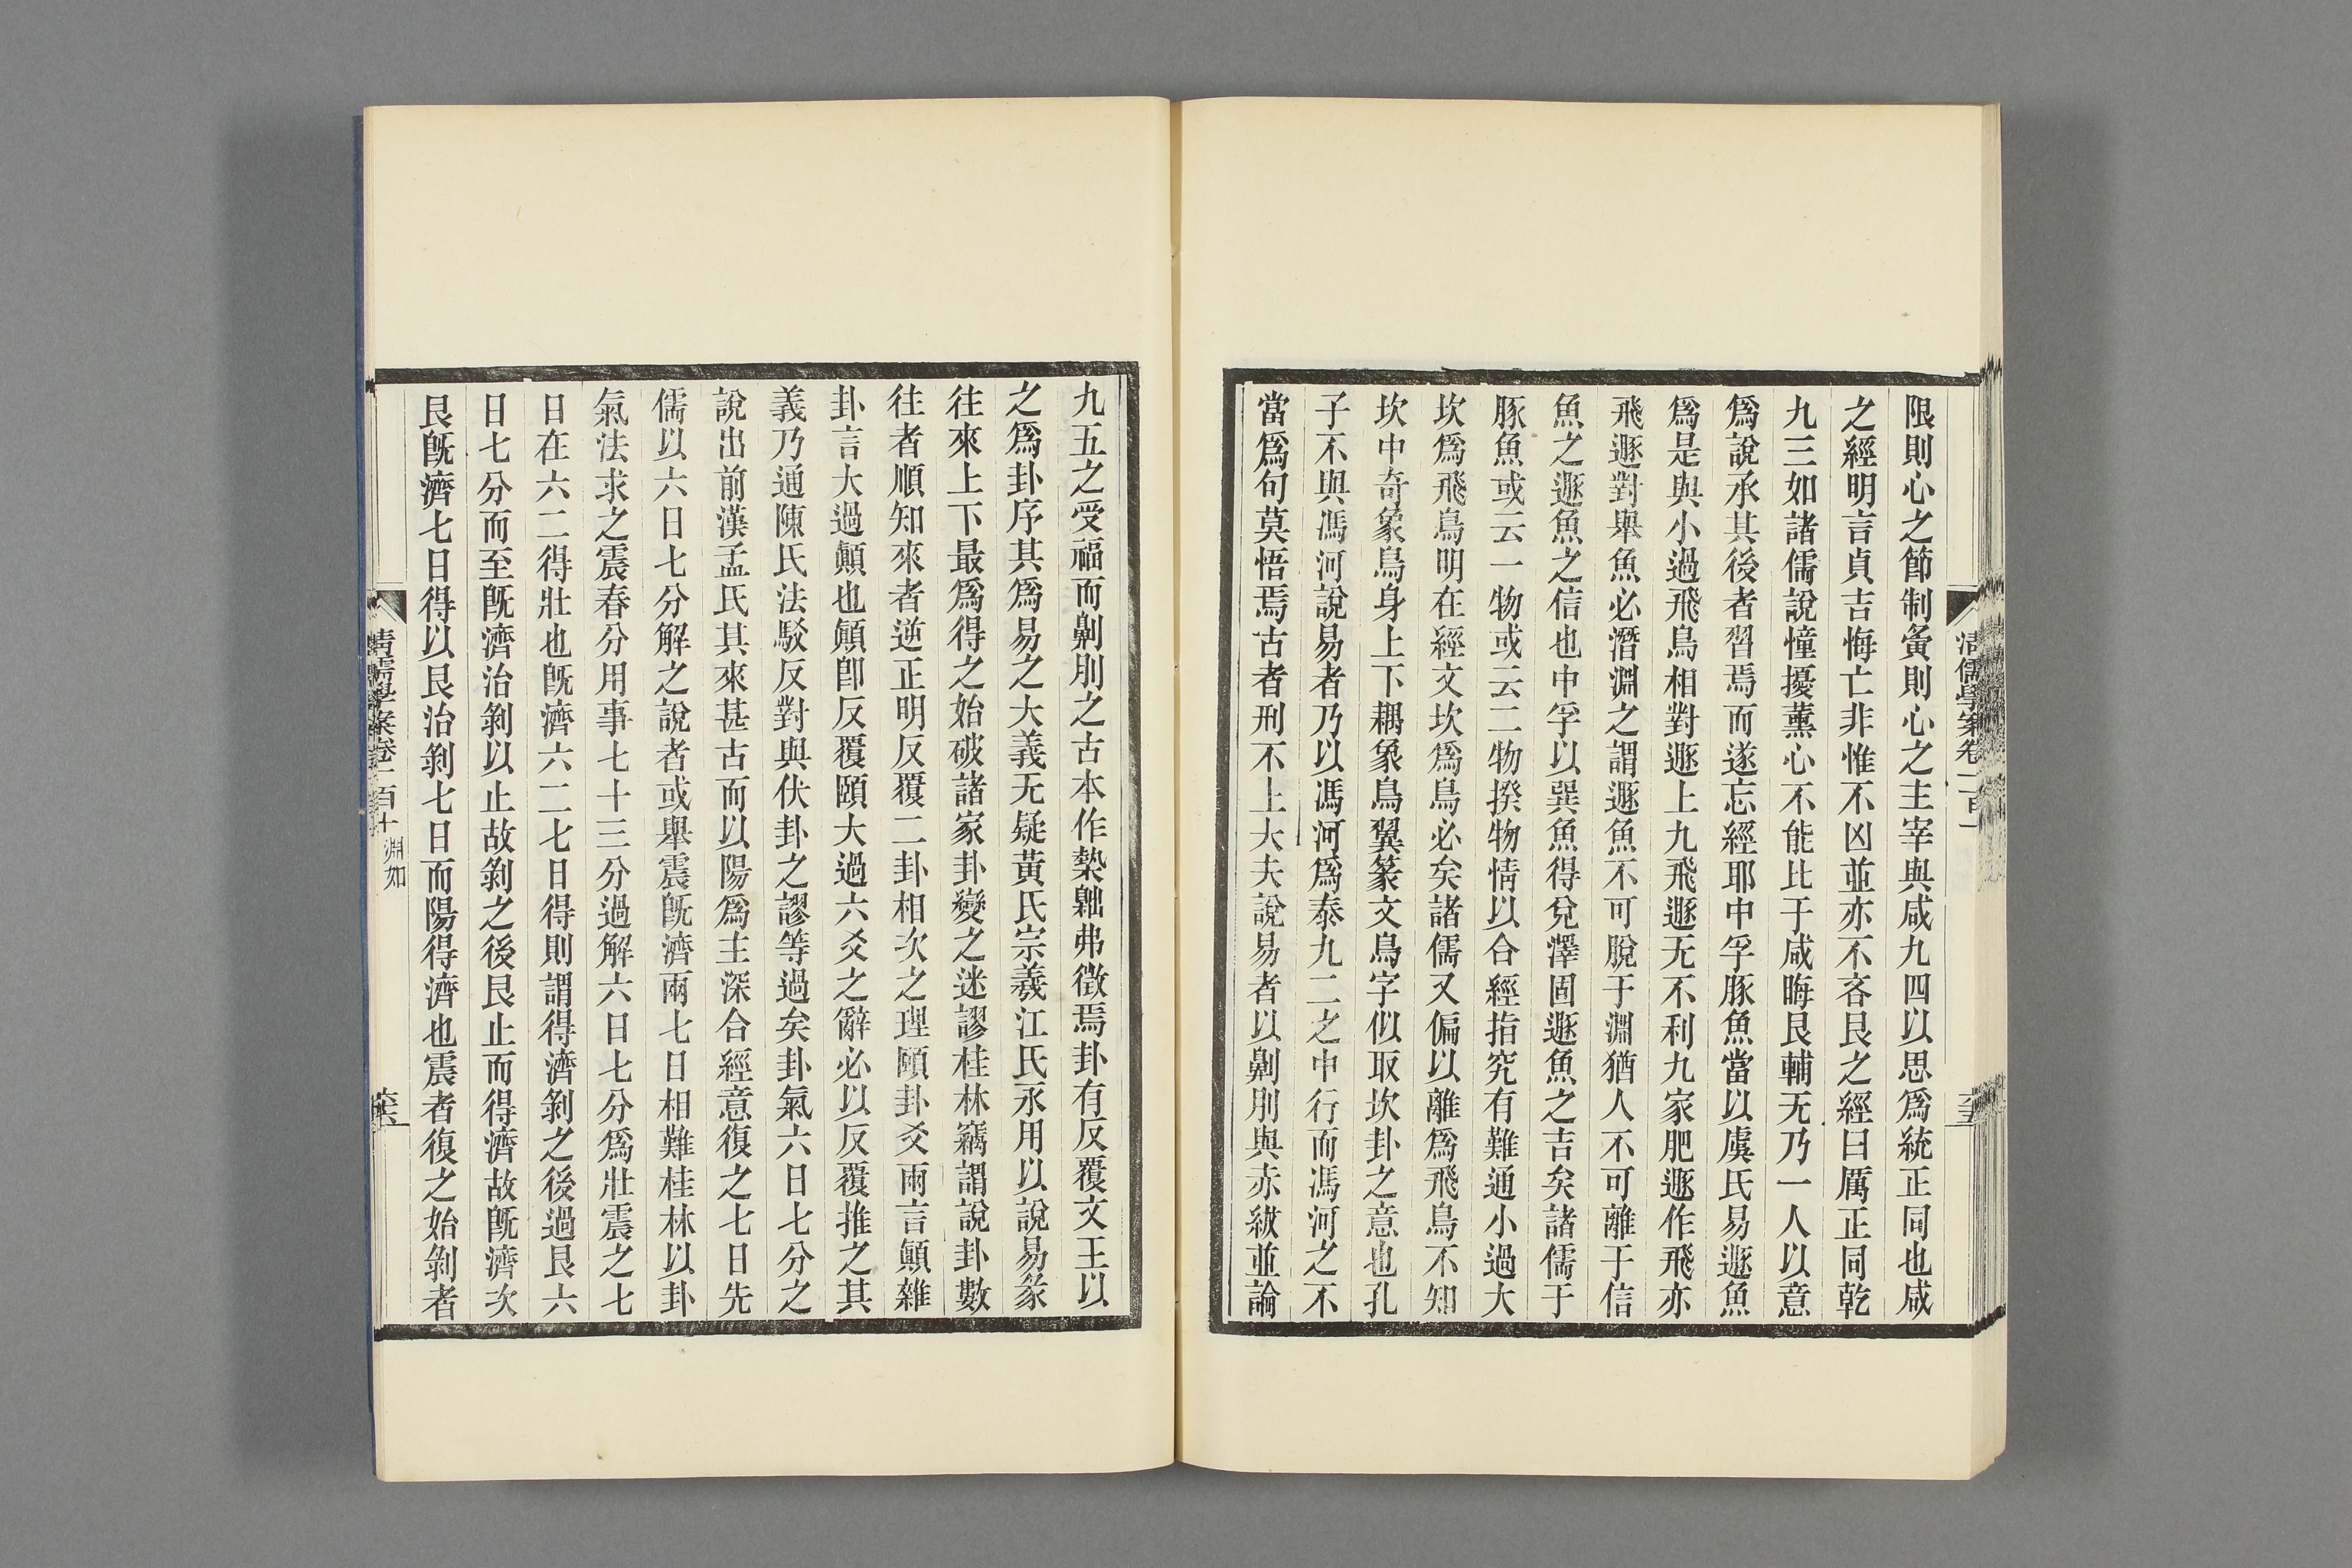 限則心之節制夤則心之主宰與咸九四以思爲統正同也咸
之經明言貞吉悔亡非惟不凶並亦不吝艮之經曰厲正同乾
九三如諸儒說憧擾薰心不能比于咸晦艮輔无乃一人以意
爲說承其後者習焉而遂忘經耶中孚豚魚當以虞氏易遯魚
爲是與小過飛鳥相對遯上九飛遯无不利九家肥遯作飛亦
飛遯對舉魚必潛淵之謂遯魚不可脫于淵猶人不可離于信
魚之遯魚之信也中孚以巽魚得兌澤固遯魚之吉矣諸儒于
豚魚或云一物或云二物揆物情以合經指究有難通小過大
坎爲飛鳥明在經文坎爲鳥必矣諸儒又偏以離爲飛鳥不知
坎中奇象鳥身上下耦象鳥翼篆文鳥字似取坎卦之意也孔
子不與馮河說易者乃以馮河爲泰九二之中行而馮河之不
當爲句莫悟焉古者刑不上大夫說易者以劓刖與赤紱並論
九五之受福而劓刖之古本作槷𠨜弗徵焉卦有反覆文王以
之爲卦序其爲易之大義无疑黃氏宗羲江氏永用以說易彖
往來上下最爲得之始破諸家卦變之迷謬桂林竊謂說卦數
往者順知來者逆正明反覆二卦相次之理頤卦爻兩言顚雜
卦言大過顚也顚卽反覆頤大過六爻之辭必以反覆推之其
義乃通陳氏法駁反對與伏卦之謬等過矣卦氣六日七分之
說出前漢孟氏其來甚古而以陽爲主深合經意復之七日先
儒以六日七分解之說者或舉震旣濟兩七日相難桂林以卦
氣法求之震春分用事七十三分過解六日七分爲壯震之七
日在六二得壯也旣濟六二七日得則謂得濟剝之後過艮六
日七分而至旣濟治剝以止故剝之後艮止而得濟故旣濟次
艮旣濟七日得以艮治剝七日而陽得濟也震者復之始剝者
清儒學案卷二百十 淵如